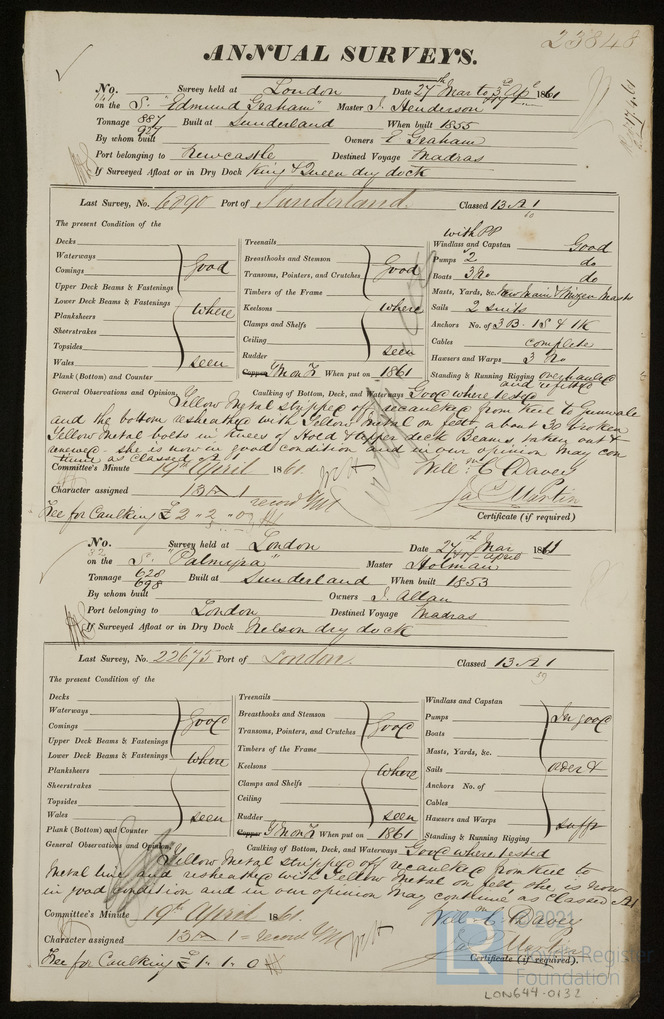 23848
ANNUAL SURVEYS.
No. 141 Survey held at London Date 27th Mar to 3rd Apl 1861
on the S. "Edmund Graham" Master J. Henderson
Tonnage 887 927 Built at Sunderland When built 1855
By whom built Owners E Graham
Port belonging to Newcastle Destined Voyage Madras
If Surveyed Afloat or in Dry Dock King & Queen dry dock
Last Survey, No. 6090 Port of Sunderland. Classed 13 A 1
60
The present Condition of the
Decks
Waterways
Comings
Upper Deck Beams & Fastenings
Lower Deck Beams & Fastenings
Planksheers
Sheerstrakes
Topsides
Wales
Plank (Bottom) and Counter
Good
where
seen
Treenails
Breasthooks and Stemson
Transoms, Pointers, and Crutches
Timbers of the Frame
Keelsons
Clamps and Shelfs
Ceiling
Rudder
Copper YM on F When put on 1861
Good
where
seen
with PP
Windlass and Capstan Good
Pumps 2 do
Boats 3 No do
Masts, Yards, &c. New Main & Mizen Masts
Sails 2 suits
Anchors No. of 3 B. 1 S & 1 K
Cables complete
Hawsers and Warps 3 No
Standing & Running Rigging overhauled
and refitted
General Observations and Opinion, Caulking of Bottom, Deck, and Waterways Good where tested
Yellow Metal stripped off, recaulked from keel to Gunwale
and the bottom resheathed with Yellow Metal on felt, about 30 broken
Yellow Metal bolts in knees of Hold & upper deck Beams, taken out &
renewed - she is now in good condition and in our opinion may con
tinue as Classed A1
Committee's Minute 19th April 1861 Will. C Davey
Character assigned 13 A 1 Jas Martin
record YM
Fee for Caulking £ 2 " 2 " 0 Certificate (if required)
No. 82 Survey held at London Date 27th Mar 1861
on the S. "Palmyra" Master Holman
Tonnage 628 698 Built at Sunderland When built 1853
By whom built Owners J. Allan
Port belonging to London Destined Voyage Madras
If Surveyed Afloat or in Dry Dock Nelson dry dock
Last Survey, No. 22675 Port of London. Classed 13 A 1
59
The present Condition of the
Decks
Waterways
Comings
Upper Deck Beams & Fastenings
Lower Deck Beams & Fastenings
Planksheers
Sheerstrakes
Topsides
Wales
Plank (Bottom) and Counter
Good
where
seen
Treenails
Breasthooks and Stemson
Transoms, Pointers, and Crutches
Timbers of the Frame
Keelsons
Clamps and Shelfs
Ceiling
Rudder
Copper YM on F When put on 1861
Good
where
seen
Windlass and Capstan
Pumps
Boats
Masts, Yards, &c.
Sails
Anchors No. of
Cables
Hawsers and Warps
Standing & Running Rigging
In good
order &
sufft
General Observations and Opinion, Caulking of Bottom, Deck, and Waterways Good where tested
Yellow Metal stripped off recaulked from keel to
Metal line and resheathed with Yellow Metal on felt, she is now
in good condition and in our opinion may continue as classed A1
Committee's Minute 19th April 1861. Will. C. Davey
Character assigned 13 A 1 - record YM Jas Martin
Fee for Caulking £ 1. 1. 0 Certificate (if required).
© 2021
LR
Lloyd's Register
Foundation
LON644-0132